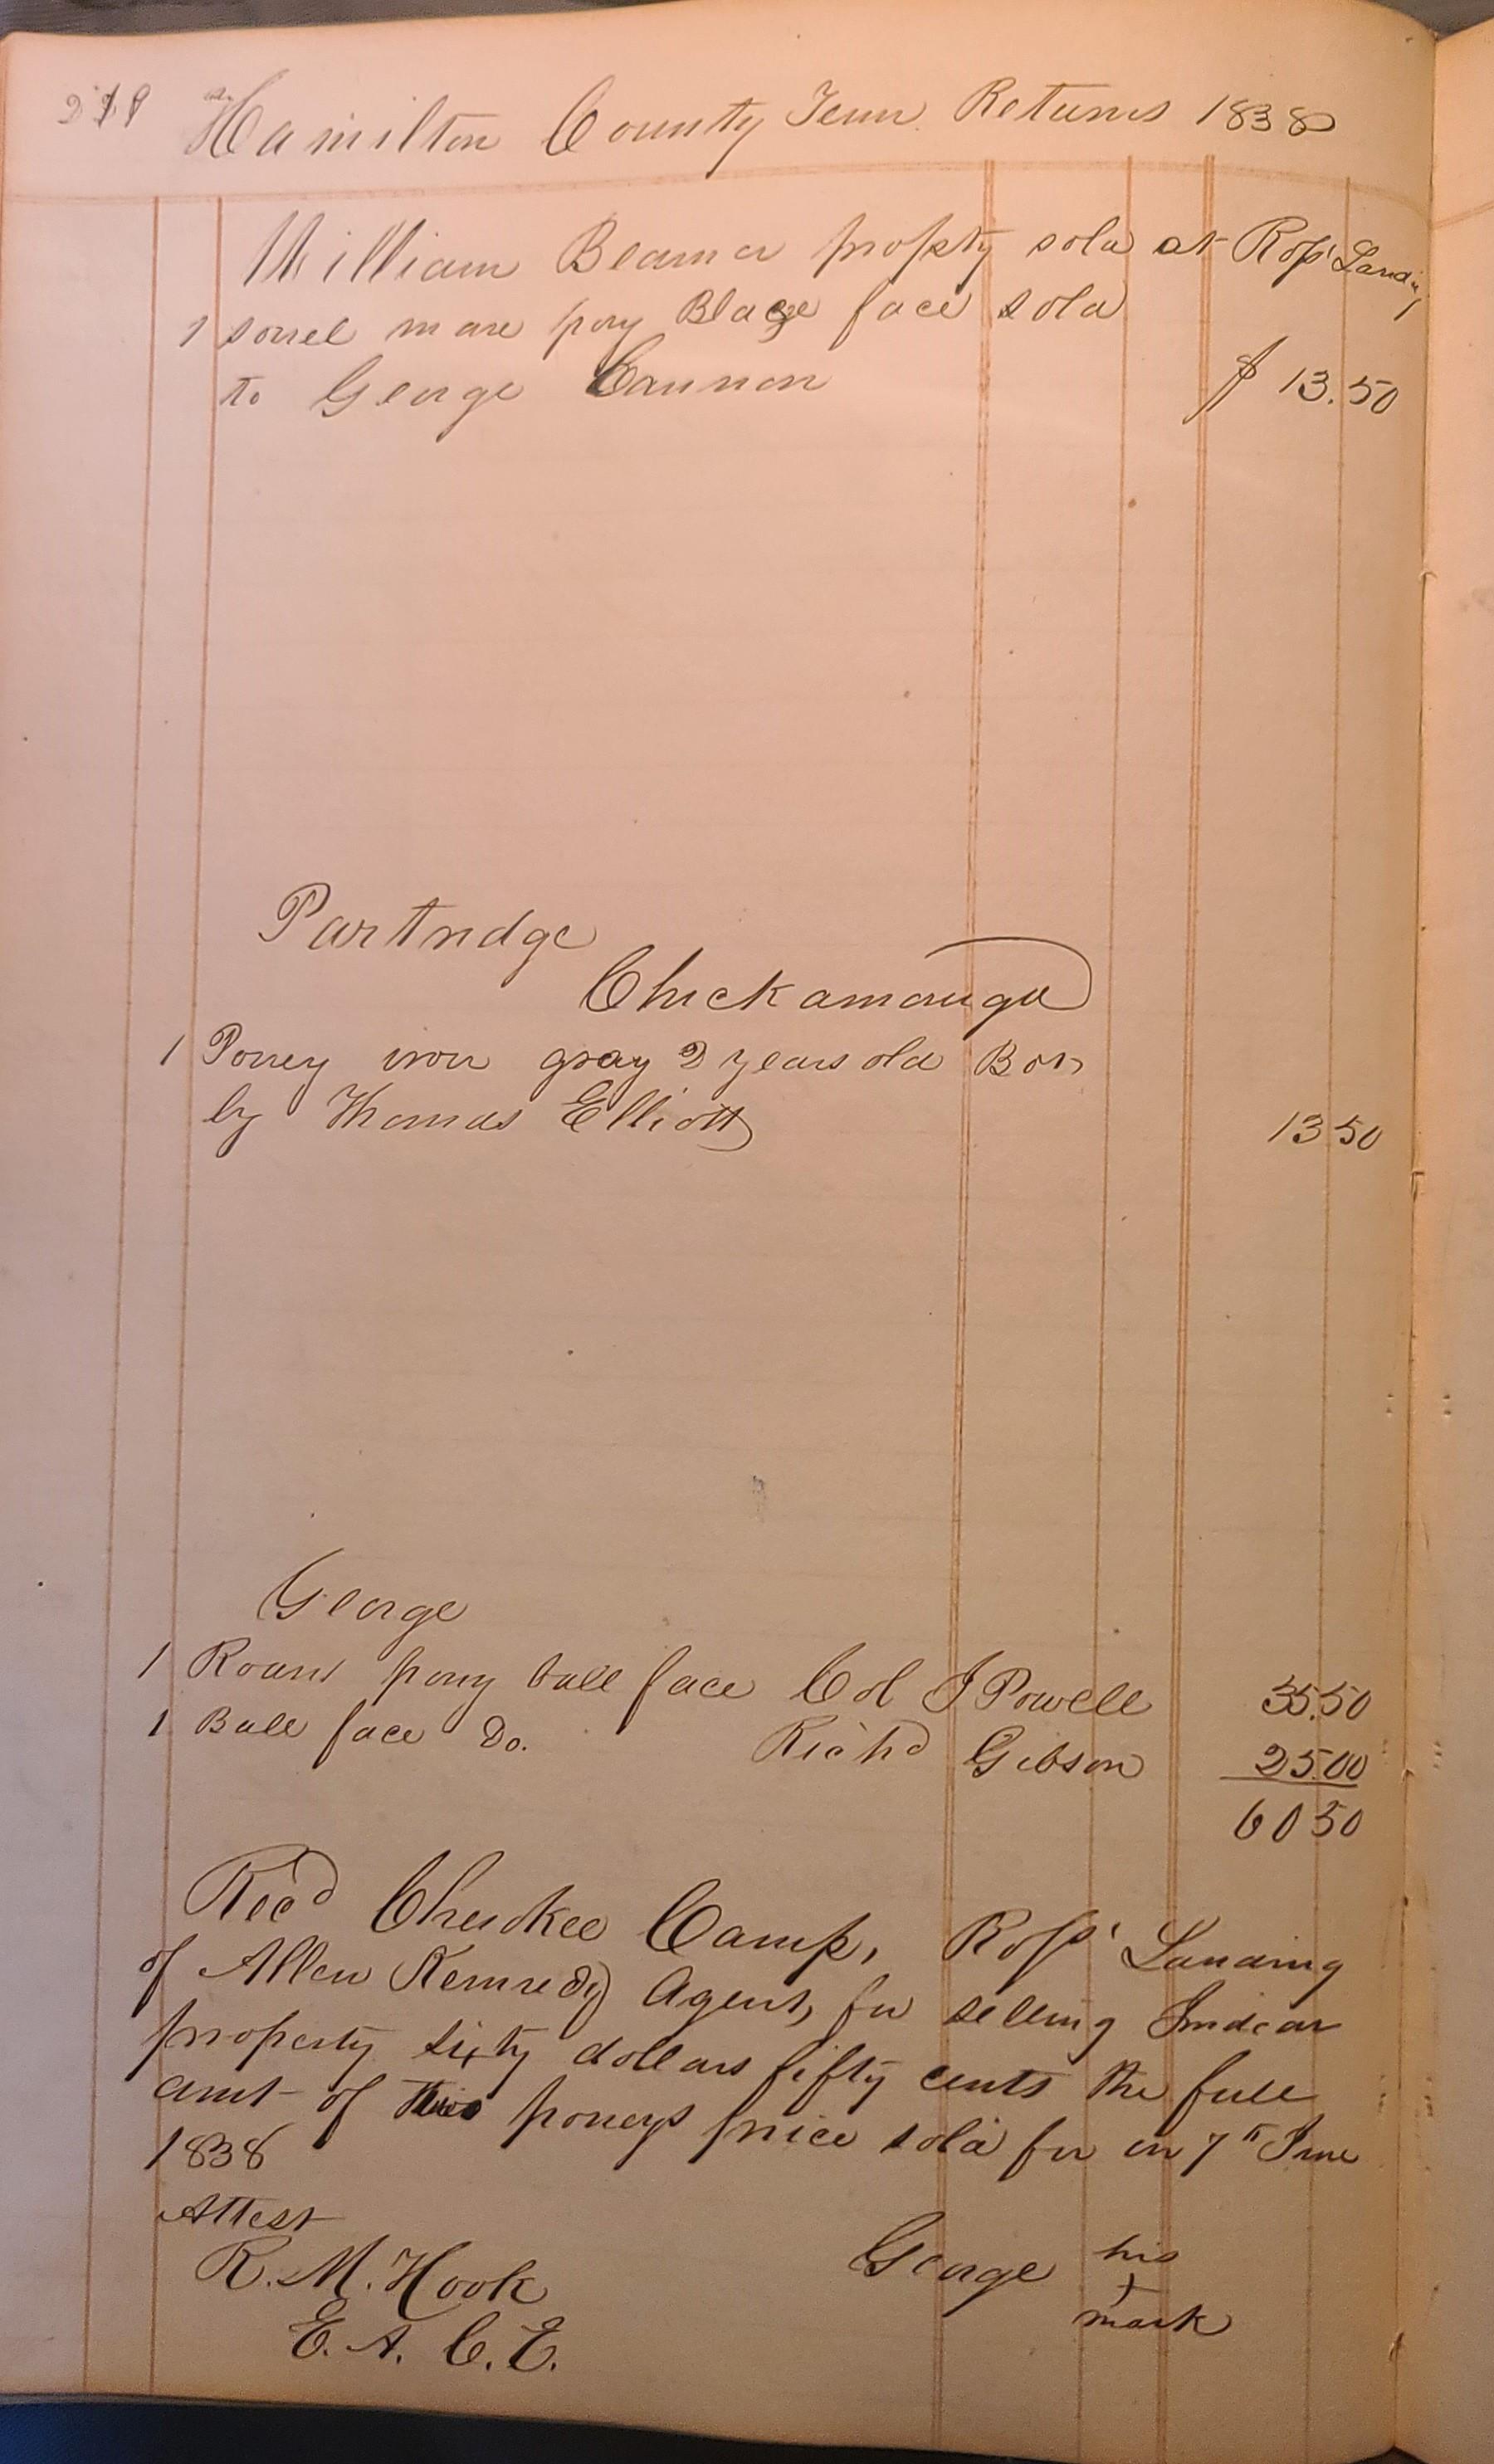 Hamilton County Tenn Returns 1838
William Beamer propty sold at Ross' Landing
1 sorrel mare pony Blaze face sold
to George Cannon $ 13.50
Partridge
Chickamauga
1 Poney iron gray 2 years old Bot
by Thomas Elliott 13 50
George
1 Roan pony ball face Col J Powell 35.50
1 Ball face Do. Richd Gibson 25.00
60 50
Recd Cherokee Camp, Ross' Landing
of Allen Kennedy Agent, for selling Indian
property sixty dollars fifty cents the full
amt of two poneys price sold for on 7th June
1838
Attest
R. M. Hook George his
+
mark
E. A. C. E.